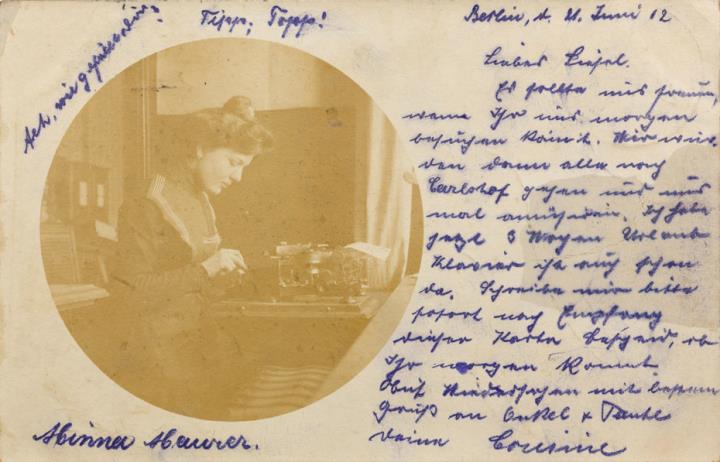 Ach, wie gefällt dir?
Tipp, Topp!
Berlin, d. 21. Juni 12
Liebes Liesel.
Es sollte uns freuen,
wenn Ihr uns morgen
besuchen könnt. Wir wür-
den dann alle nach
Carlshof gehen und uns
mal amüsieren. Ich habe
jetzt 3 Wochen Urlaub
Klavier ist auch schon
da. Schreibe mir bitte
sofort nach Empfang
dieser Karte Bescheid, ob
Ihr morgen kommt.
Auf Wiedersehen mit bestem
Gruß an Onkel & Tante
deine Cousine
Minna Maurer.